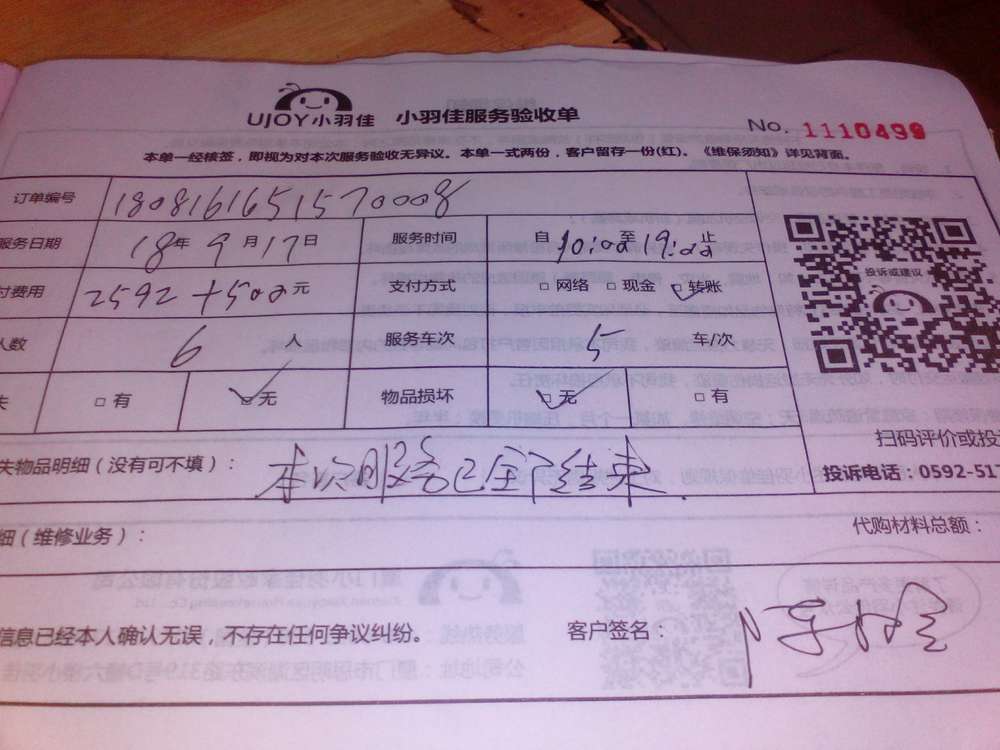 UJOY小羽佳 小羽佳服务验收单
No. 1110499
本单一经核签，即视为对本次服务验收无异议。本单一式两份，客户留存一份(红)。《维保须知》详见背面。
订单编号 1808161651570008
服务日期 18年 9月17日 服务时间 自10:00至19:00止
付费用 2592+500元 支付方式 □网络 □现金 □转账
投诉或建议
人数 6 人 服务车次 5 车/次
失 □有 □无 物品损坏 □无 □有
扫码评价或投
失物品明细（没有可不填）： 本次服务已全部结束.
投诉电话：0592-517
细（维修业务）： 代购材料总额：
信息已经本人确认无误，不存在任何争议纠纷。 客户签名：